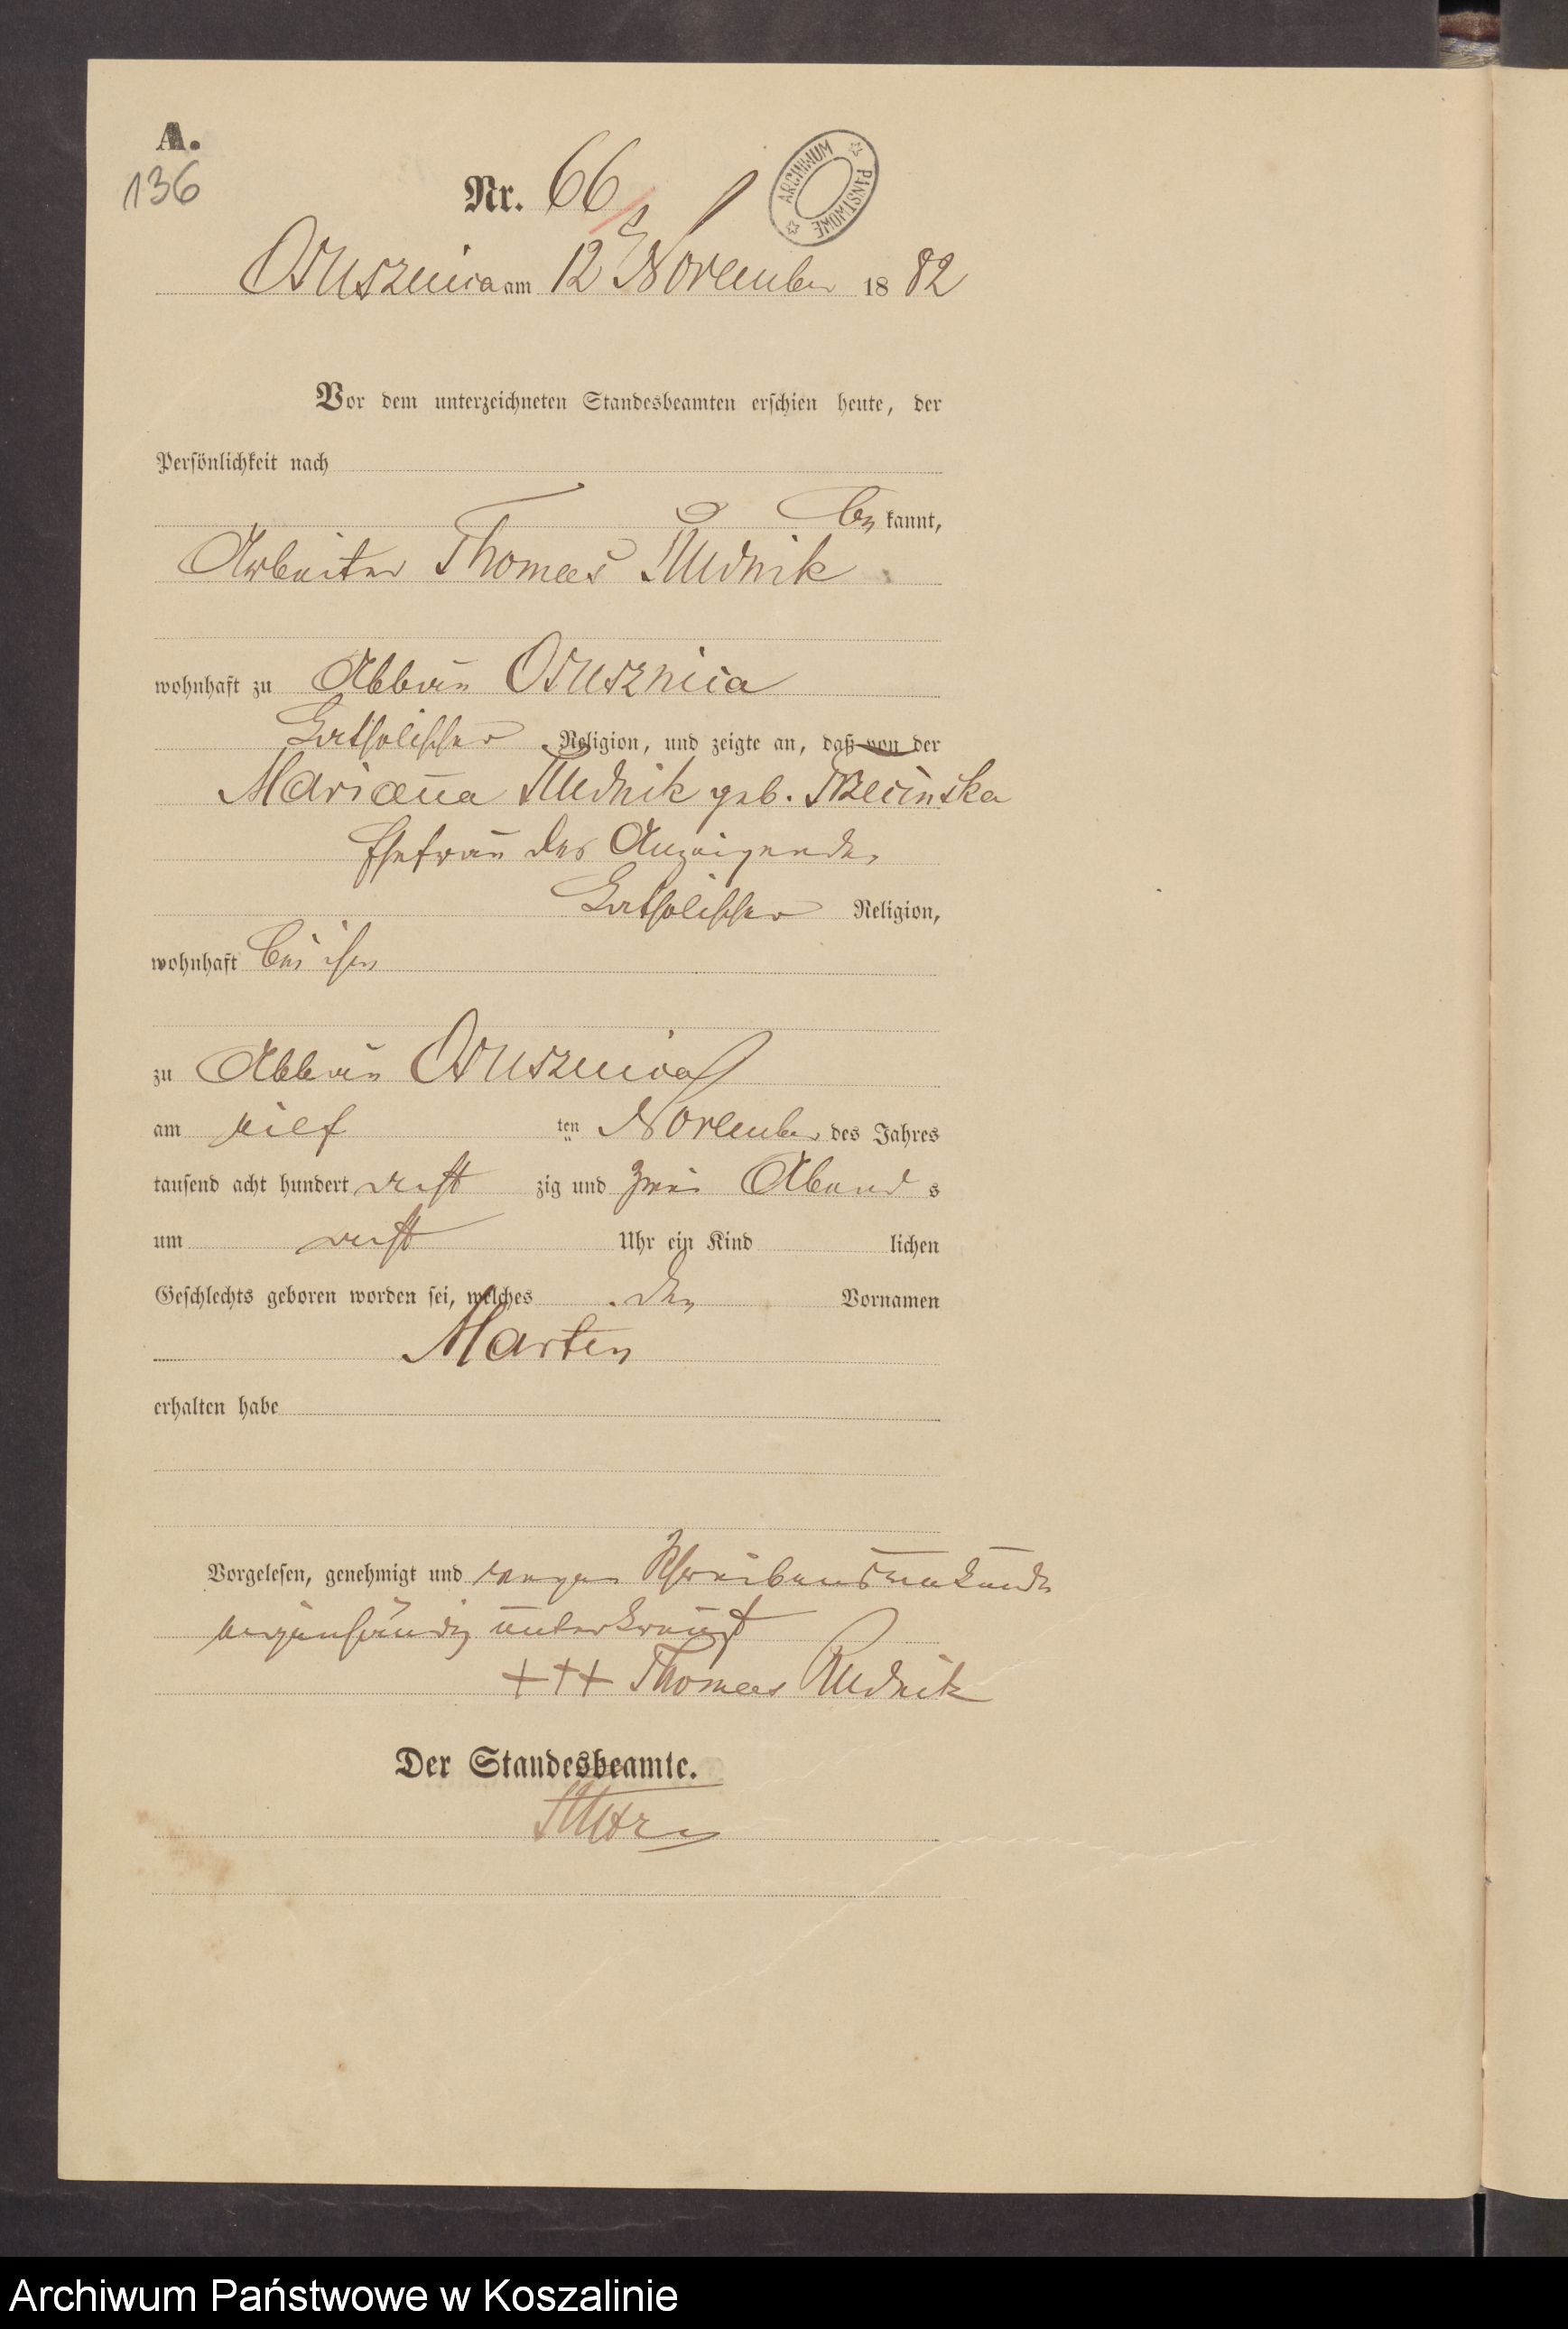 A.
136
Nr. 66
ARCHIWUM PAŃSTWOWE
Ossusznica am 12 November 18 82
Vor dem unterzeichneten Standesbeamten erschien heute, der
Persönlichkeit nach
be kannt,
Arbeiter Thomas Rudnik
wohnhaft zu Abbau Ossusznica
katholischer Religion, und zeigte an, daß von der
Marianna Rudnik geb.
Ehefrau des Anzeigenden
katholischer Religion,
wohnhaft bei ihm
zu Abbau Ossusznica
am elf ten November des Jahres
tausend acht hundert acht zig und zwei Abend s
um acht Uhr ein Kind lichen
Geschlechts geboren worden sei, welches den Vornamen
Marten
erhalten habe
Vorgelesen, genehmigt und wegen Schreibensunkunde
eigenhändig unterkreuzt
+++ Thomas Rudnik
Der Standesbeamte.
Archiwum Państwowe w Koszalinie